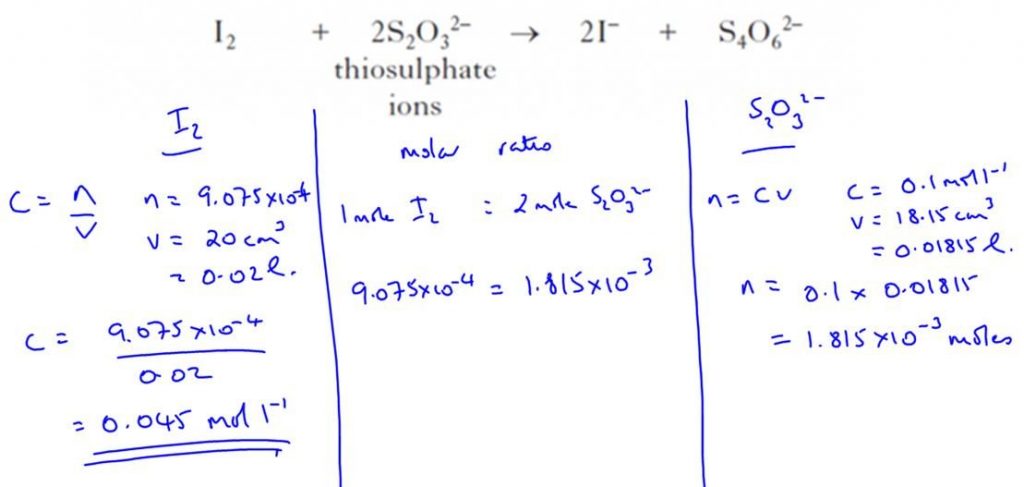 I₂ + 2S₂O₃²⁻ → 2I⁻ + S₄O₆²⁻
thiosulphate
ions
I₂
C = n/v
n = 9.075×10⁻⁴
v = 20 cm³
= 0.02 l.
C = 9.075×10⁻⁴/0.02
= 0.045 mol l⁻¹
molar ratio
1 mole I₂ : 2 mole S₂O₃²⁻
9.075×10⁻⁴ = 1.815×10⁻³
S₂O₃²⁻
n = CV
C = 0.1 mol l⁻¹
V = 18.15 cm³
= 0.01815 l.
n = 0.1 × 0.01815
= 1.815×10⁻³ moles